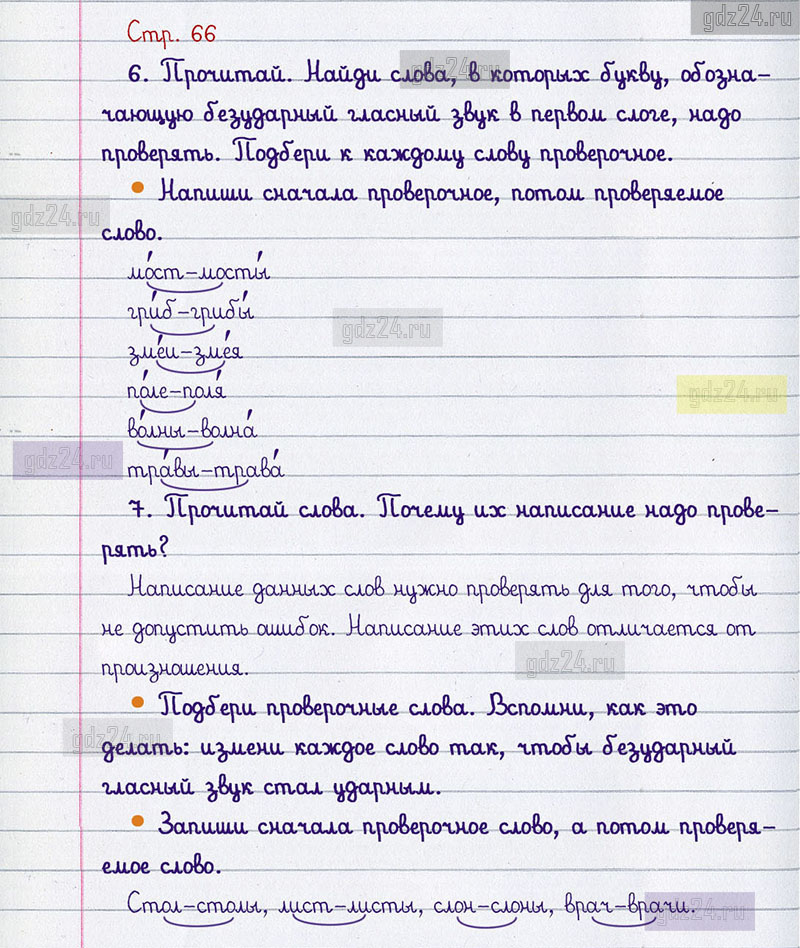 gdz24.ru
Стр. 66
6. Прочитай. Найди слова, в которых букву, обозна-
gdz24.ru
чающую безударный гласный звук в первом слоге, надо
проверять. Подбери к каждому слову проверочное.
• Напиши сначала проверочное, потом проверяемое
gdz24.ru
слово.
мо́ст-мосты́
гри́б-грибы́
gdz24.ru
зме́и-змея́
по́ле-поля́
gdz24.ru
во́лны-волна́
gdz24.ru
тра́вы-трава́
7. Прочитай слова. Почему их написание надо прове-
рять?
Написание данных слов нужно проверять для того, чтобы
не допустить ошибок. Написание этих слов отличается от
произношения.
gdz24.ru
• Подбери проверочные слова. Вспомни, как это
gdz24.ru
делать: измени каждое слово так, чтобы безударный
гласный звук стал ударным.
• Запиши сначала проверочное слово, а потом проверя-
емое слово.
Стол-столы, лист-листы, слон-слоны, врач-врачи.
gdz24.ru